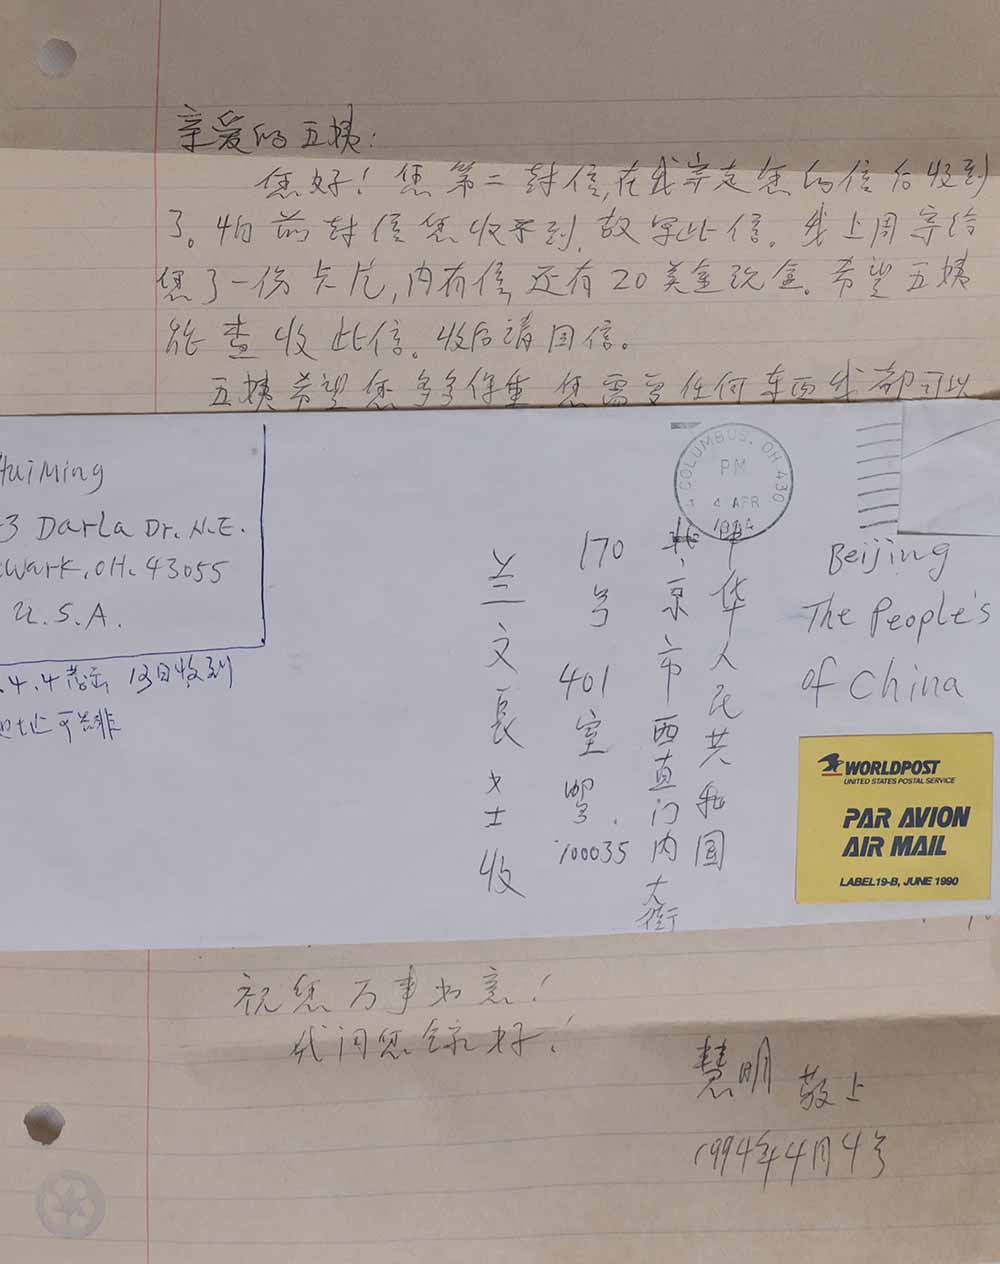 亲爱的五姨:
您好!您第二封信,在我寄走您的信后收到
了。怕前封信您收不到,故写此信。我上周寄给
您了一份卡片,内有信,还有20美金现金。希望五姨
能查收此信。收后请回信。
五姨希望您多多保重 您需要任何东西我都可以
HuiMing
3 Darla Dr. N.E.
wark. OH. 43055
U.S.A.
4.4 13日收到
COLUMBUS, OH 430
PM
4 APR
1994
Beijing
The People's
of China
中华人民共和国
北京市西直门内大街
170号 401室 邮. 100035
兰文长女士收
WORLDPOST
UNITED STATES POSTAL SERVICE
PAR AVION
AIR MAIL
LABEL 19-B, JUNE 1990
祝您万事如意!
代问您全家好!
慧明 敬上
1994年4月4号